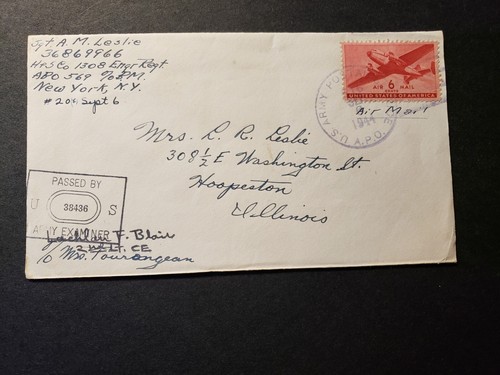 Sgt. A. M. Leslie
36869966
H+S Co 1308 Engr Regt
APO 569 % P.M.
New York, N.Y.
#201 Sept 6
AIR 6 MAIL
CENTS
UNITED STATES OF AMERICA
Air Mail
U.S. ARMY A.P.O.
1944
Mrs. L. R. Leslie
308 1/2 E Washington St.
Hoopeston
Illinois
PASSED BY
U 38436 S
ARMY EXAMINER
F. Blair
2nd Lt. CE
% Mrs. Tourangeau